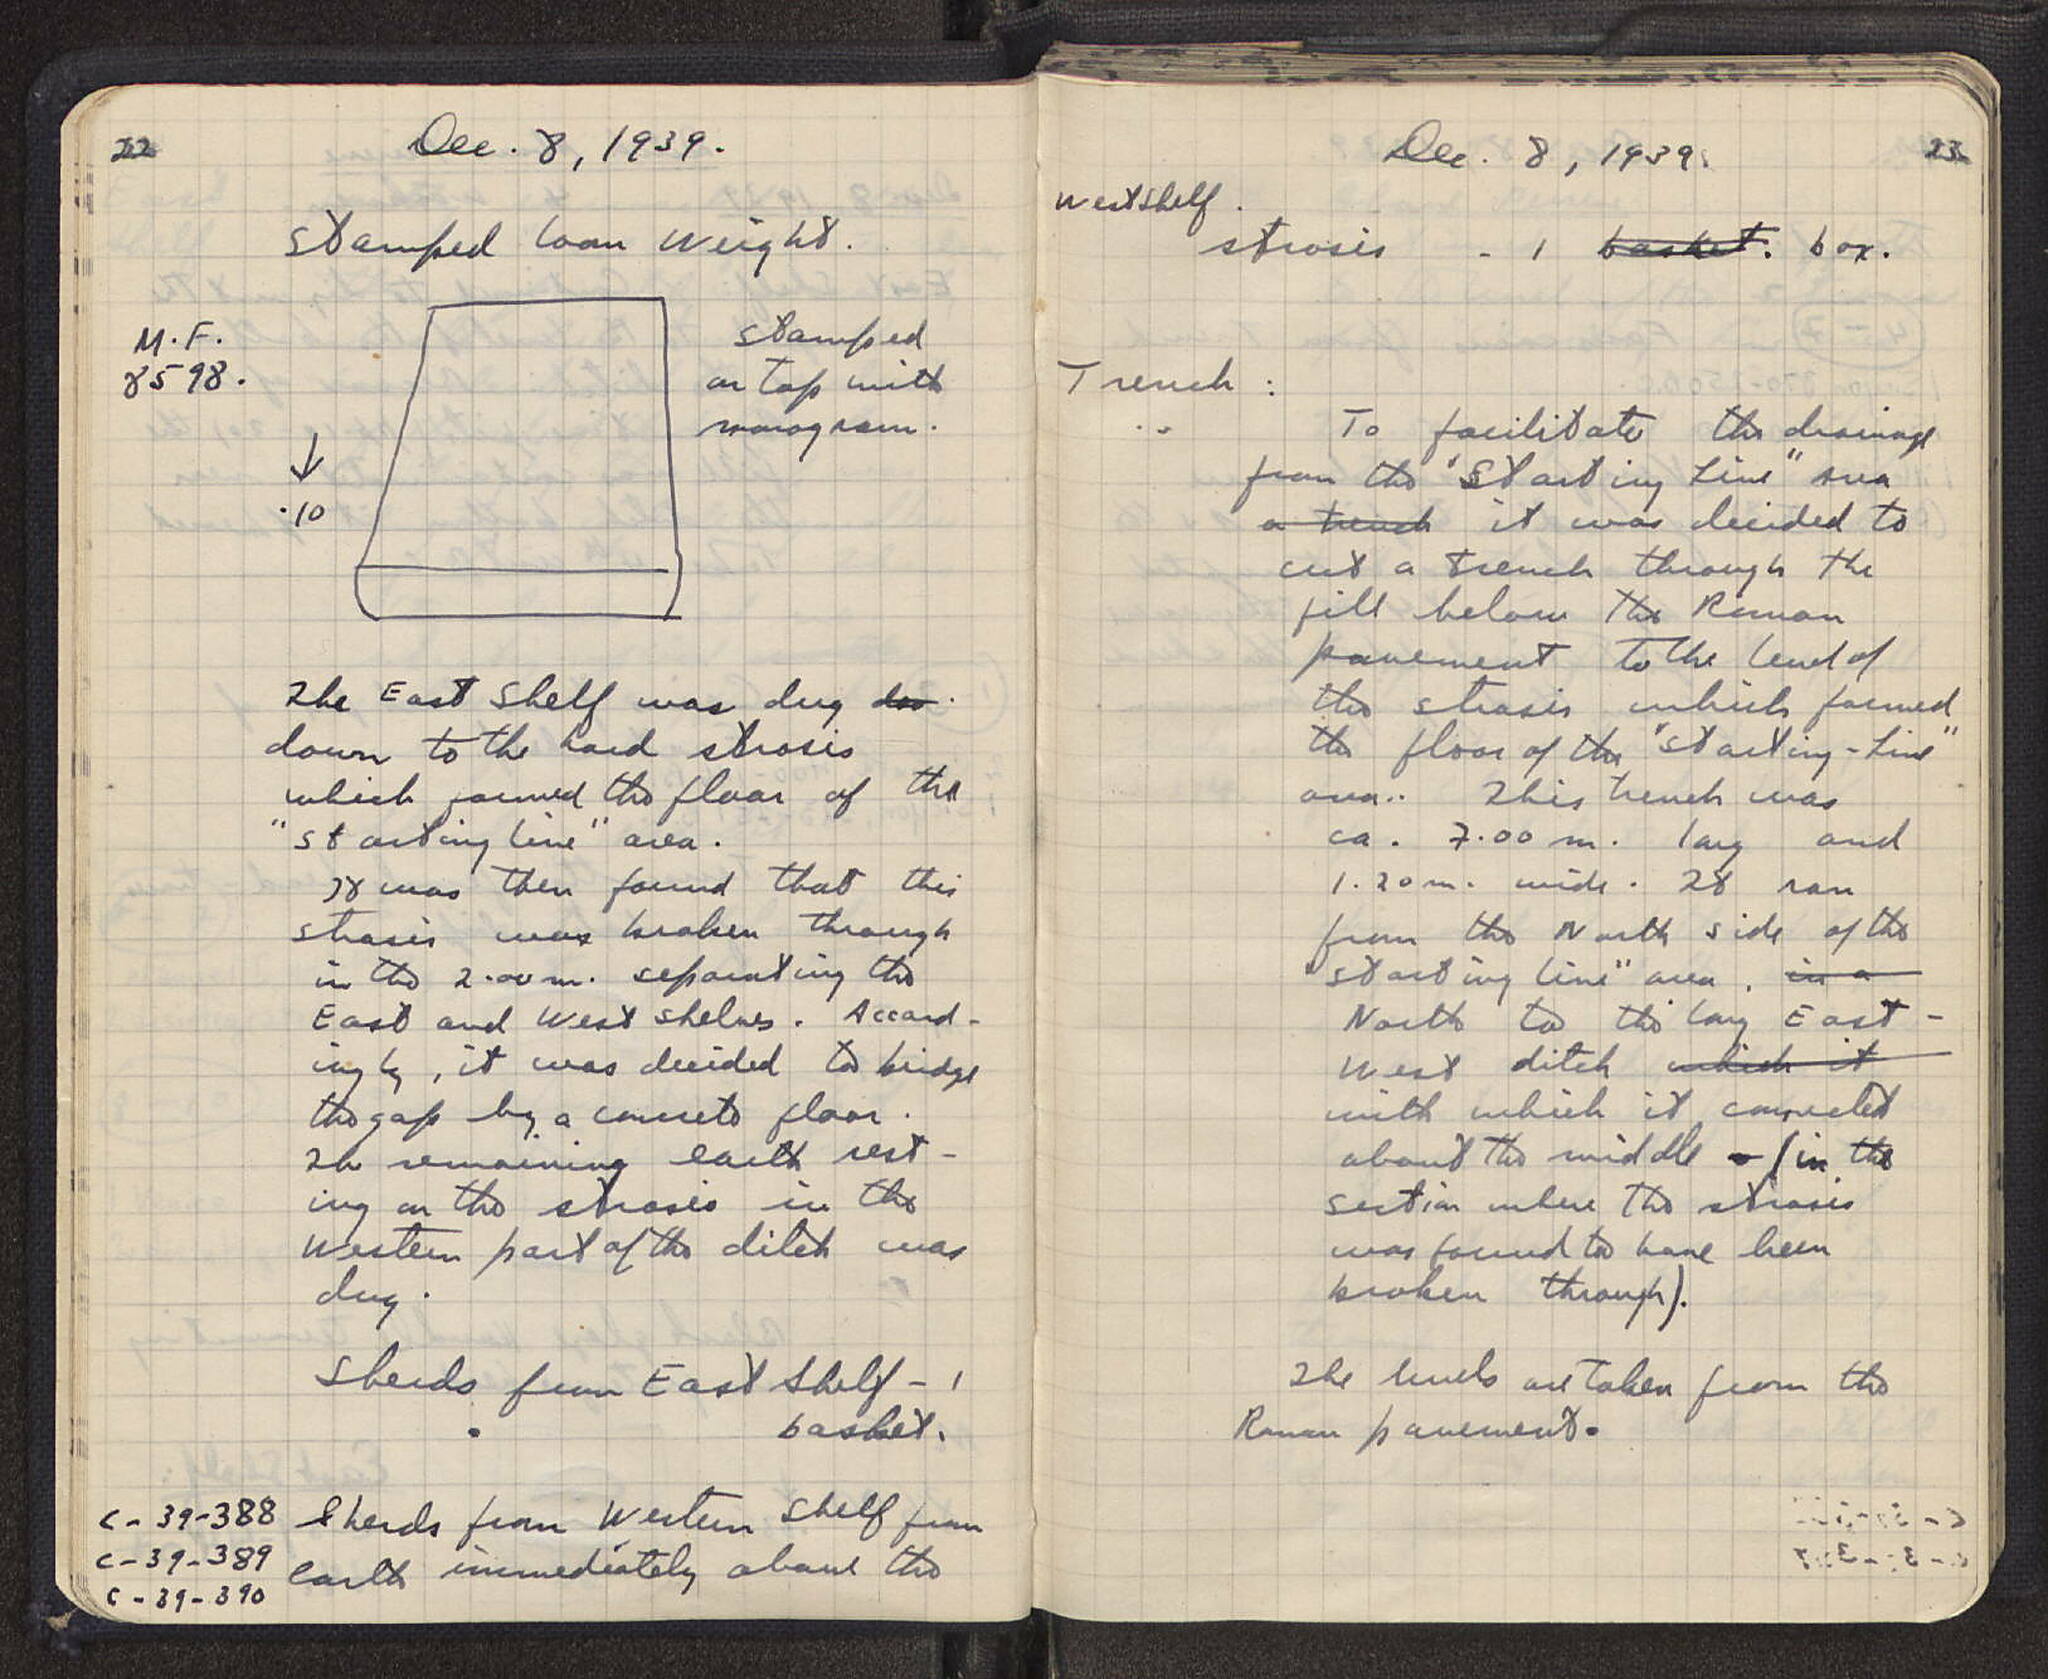 22
Dec. 8, 1939.
Stamped loom weight.
M.F.
8598.
↓
.10
stamped
on top with
monogram.
The East Shelf was dug dow
down to the hard strosis
which formed the floor of the
"starting line" area.
It was then found that this
strosis was broken through
in the 2.00 m. separating the
East and West shelves. Accord-
ingly, it was decided to bridge
the gap by a concrete floor.
The remaining earth rest-
ing on the strosis in the
Western part of the ditch was
dug.
Sherds from East Shelf - 1
basket.
C-39-388
C-39-389
C-39-390
Sherds from Western Shelf from
earth immediately above the
Dec. 8, 1939.
23
West Shelf.
strosis - 1 basket. box.
Trench:
To facilitate the drainage
from the "Starting Line" area
a trench it was decided to
cut a trench through the
fill below the Roman
pavement to the level of
the strosis which formed
the floor of the "starting-line"
area.. This trench was
ca. 7.00 m. long and
1.20 m. wide. It ran
from the North side of the
"starting line" area, in a
North to the long East-
West ditch which it
with which it connected
about the middle (in the
section where the strosis
was found to have been
broken through).
The levels are taken from the
Roman pavement.